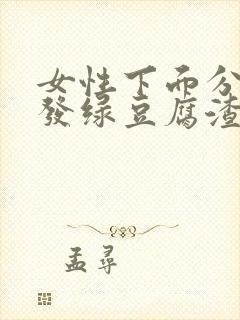 女性下面分
發绿豆腐渣
孟尋